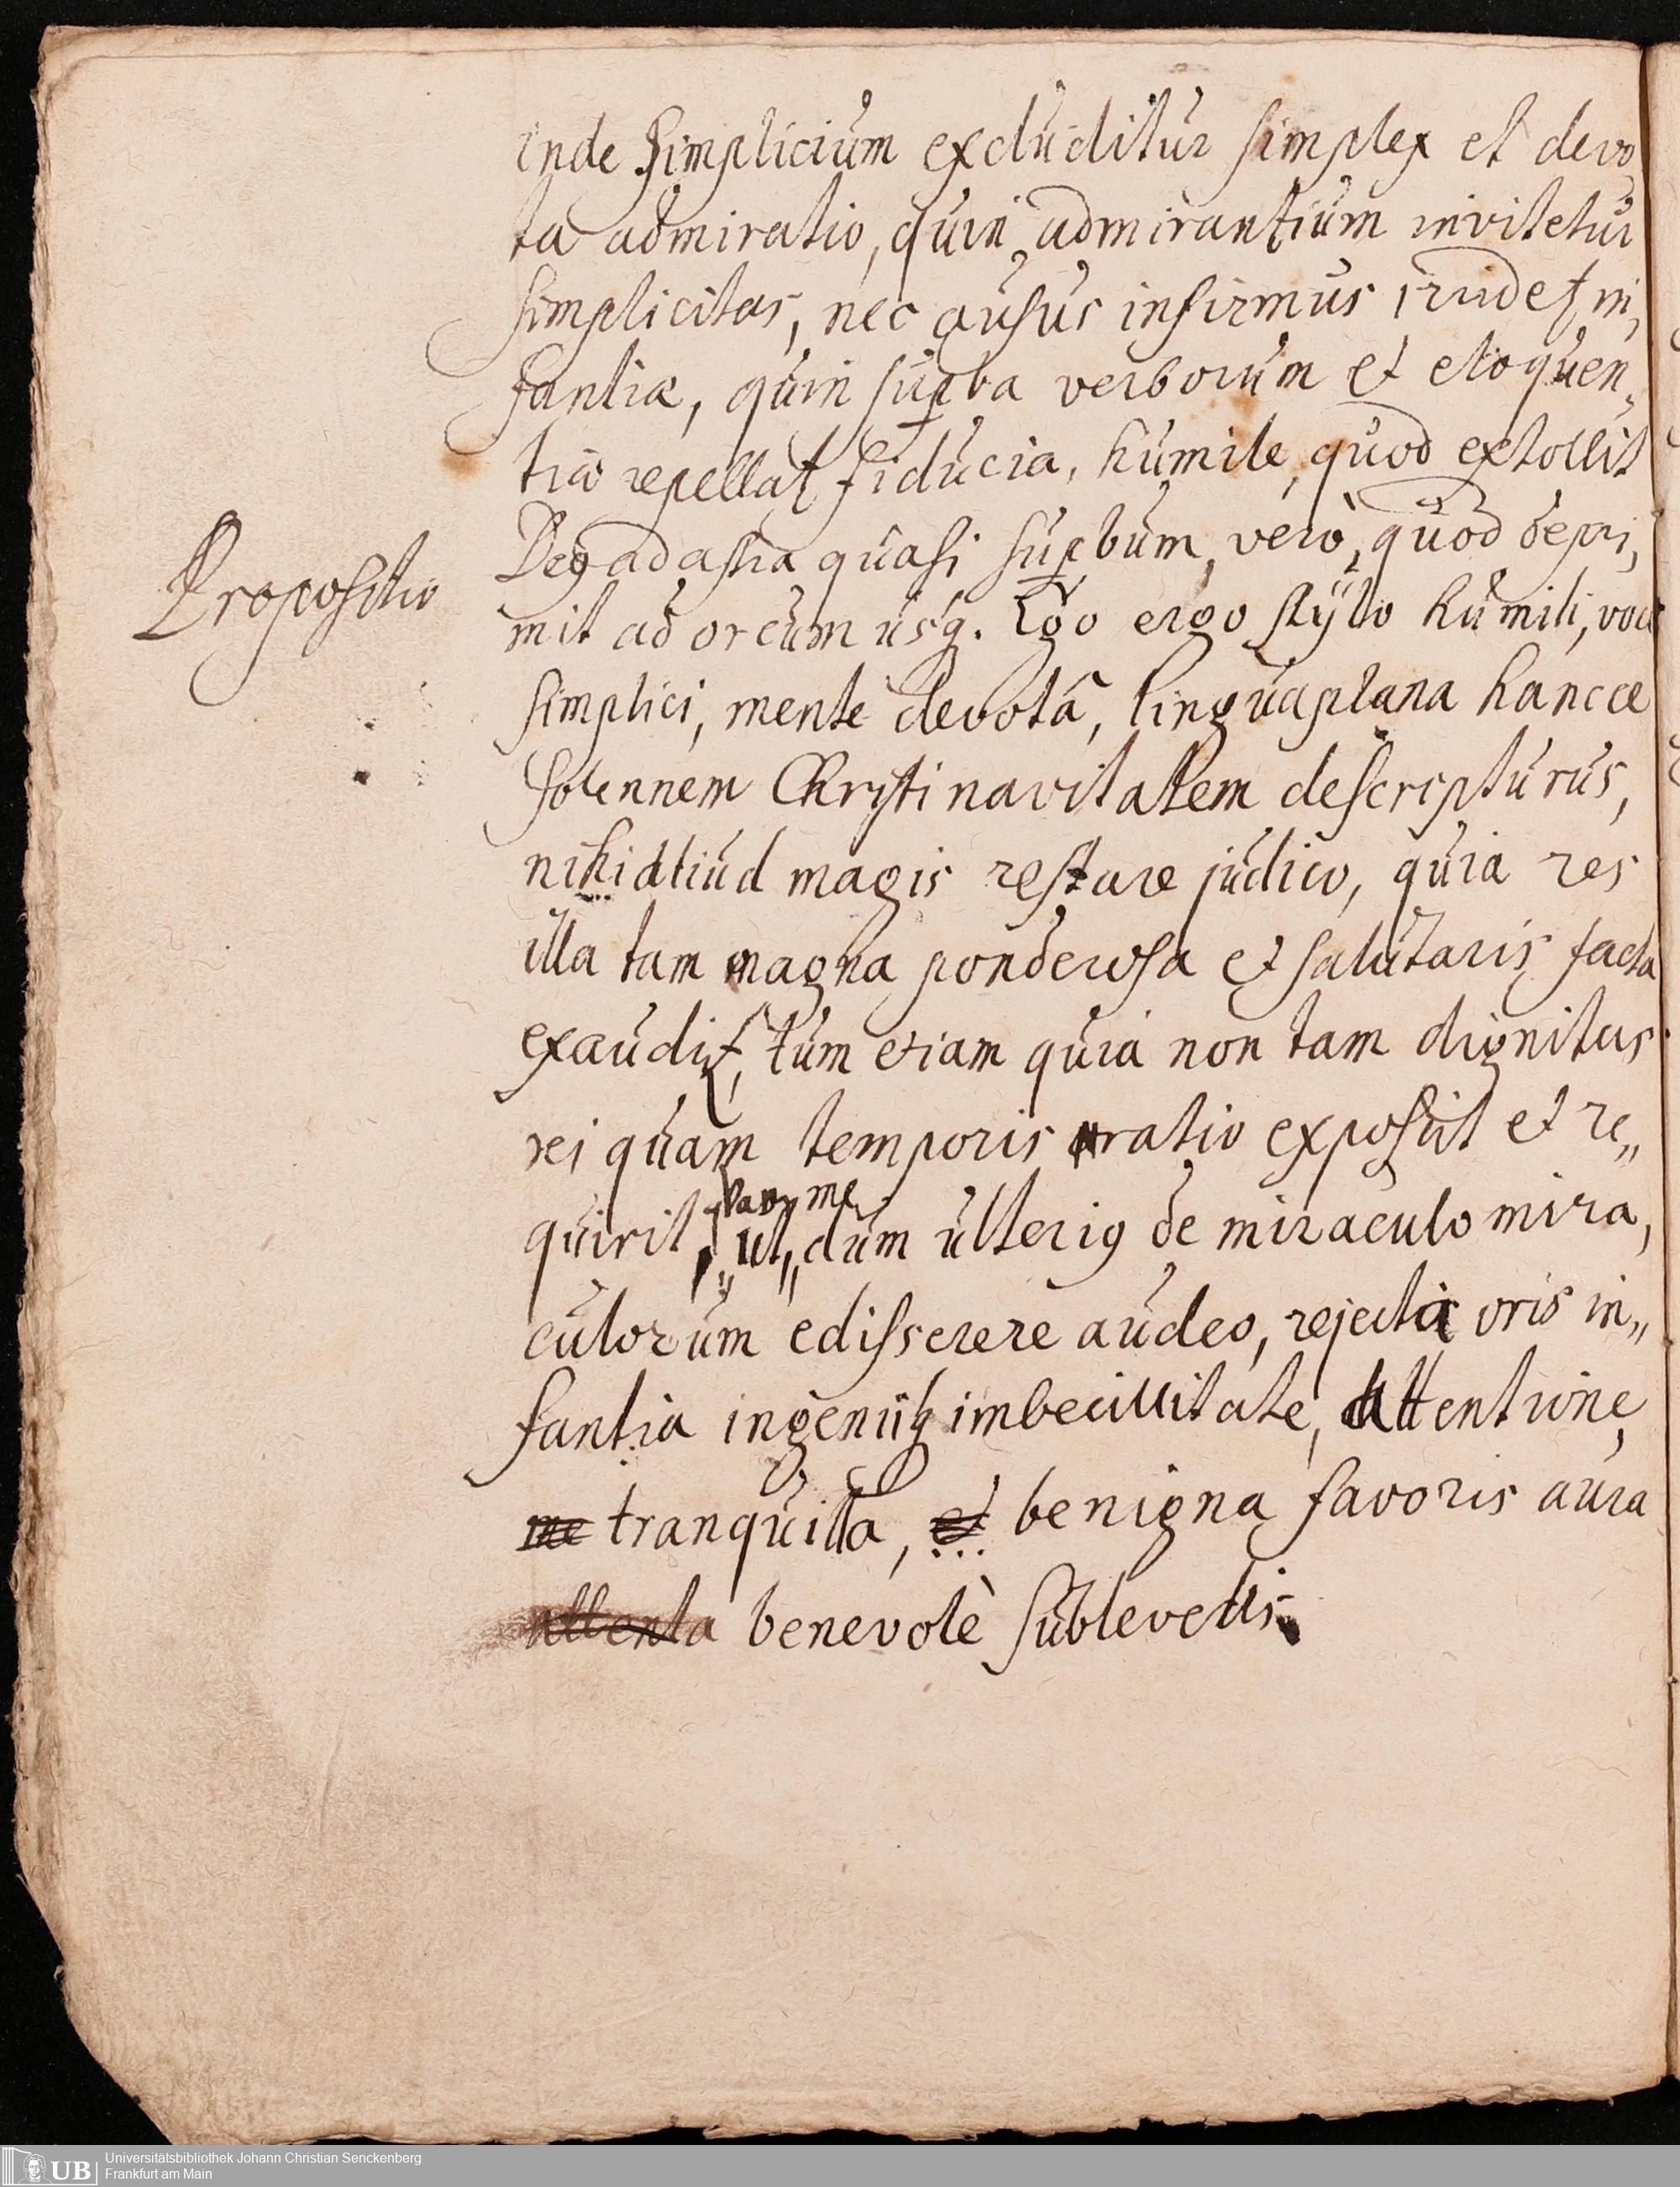 inde simplicium excluditur simplex et devo
ta admiratio, quin admirantium invitetur
simplicitas, nec ausus infirmus, rudet in,
fantia, quin supba verborum et eloquen„
tiâ repellat fiducia, humile, quod extollit
Deg ad astra quasi supbum, verò, quod depri,
Propositio
mit ad orcum usq. Ego ergo stÿlo humili, voce
simplici, mente devotâ, lingua plana hancce
solennem Christi navitatem descripturus,
nihil aliud magis restare judico, quia res
illa tam magna ponderosa et salutaris facta
exaudit, tum etiam quia non tam dignitas
rei quam temporis ratio exposcit et re„
quirit, ut me dum ulterig de miraculo mira,
culorum edisserere audeo, rejecta oris in„
fantia ingeniiq imbecillitate, attentione
me tranquilla, et benigna favoris aura
attenta benevolè sublevetis.
Universitätsbibliothek Johann Christian Senckenberg
UB Frankfurt am Main